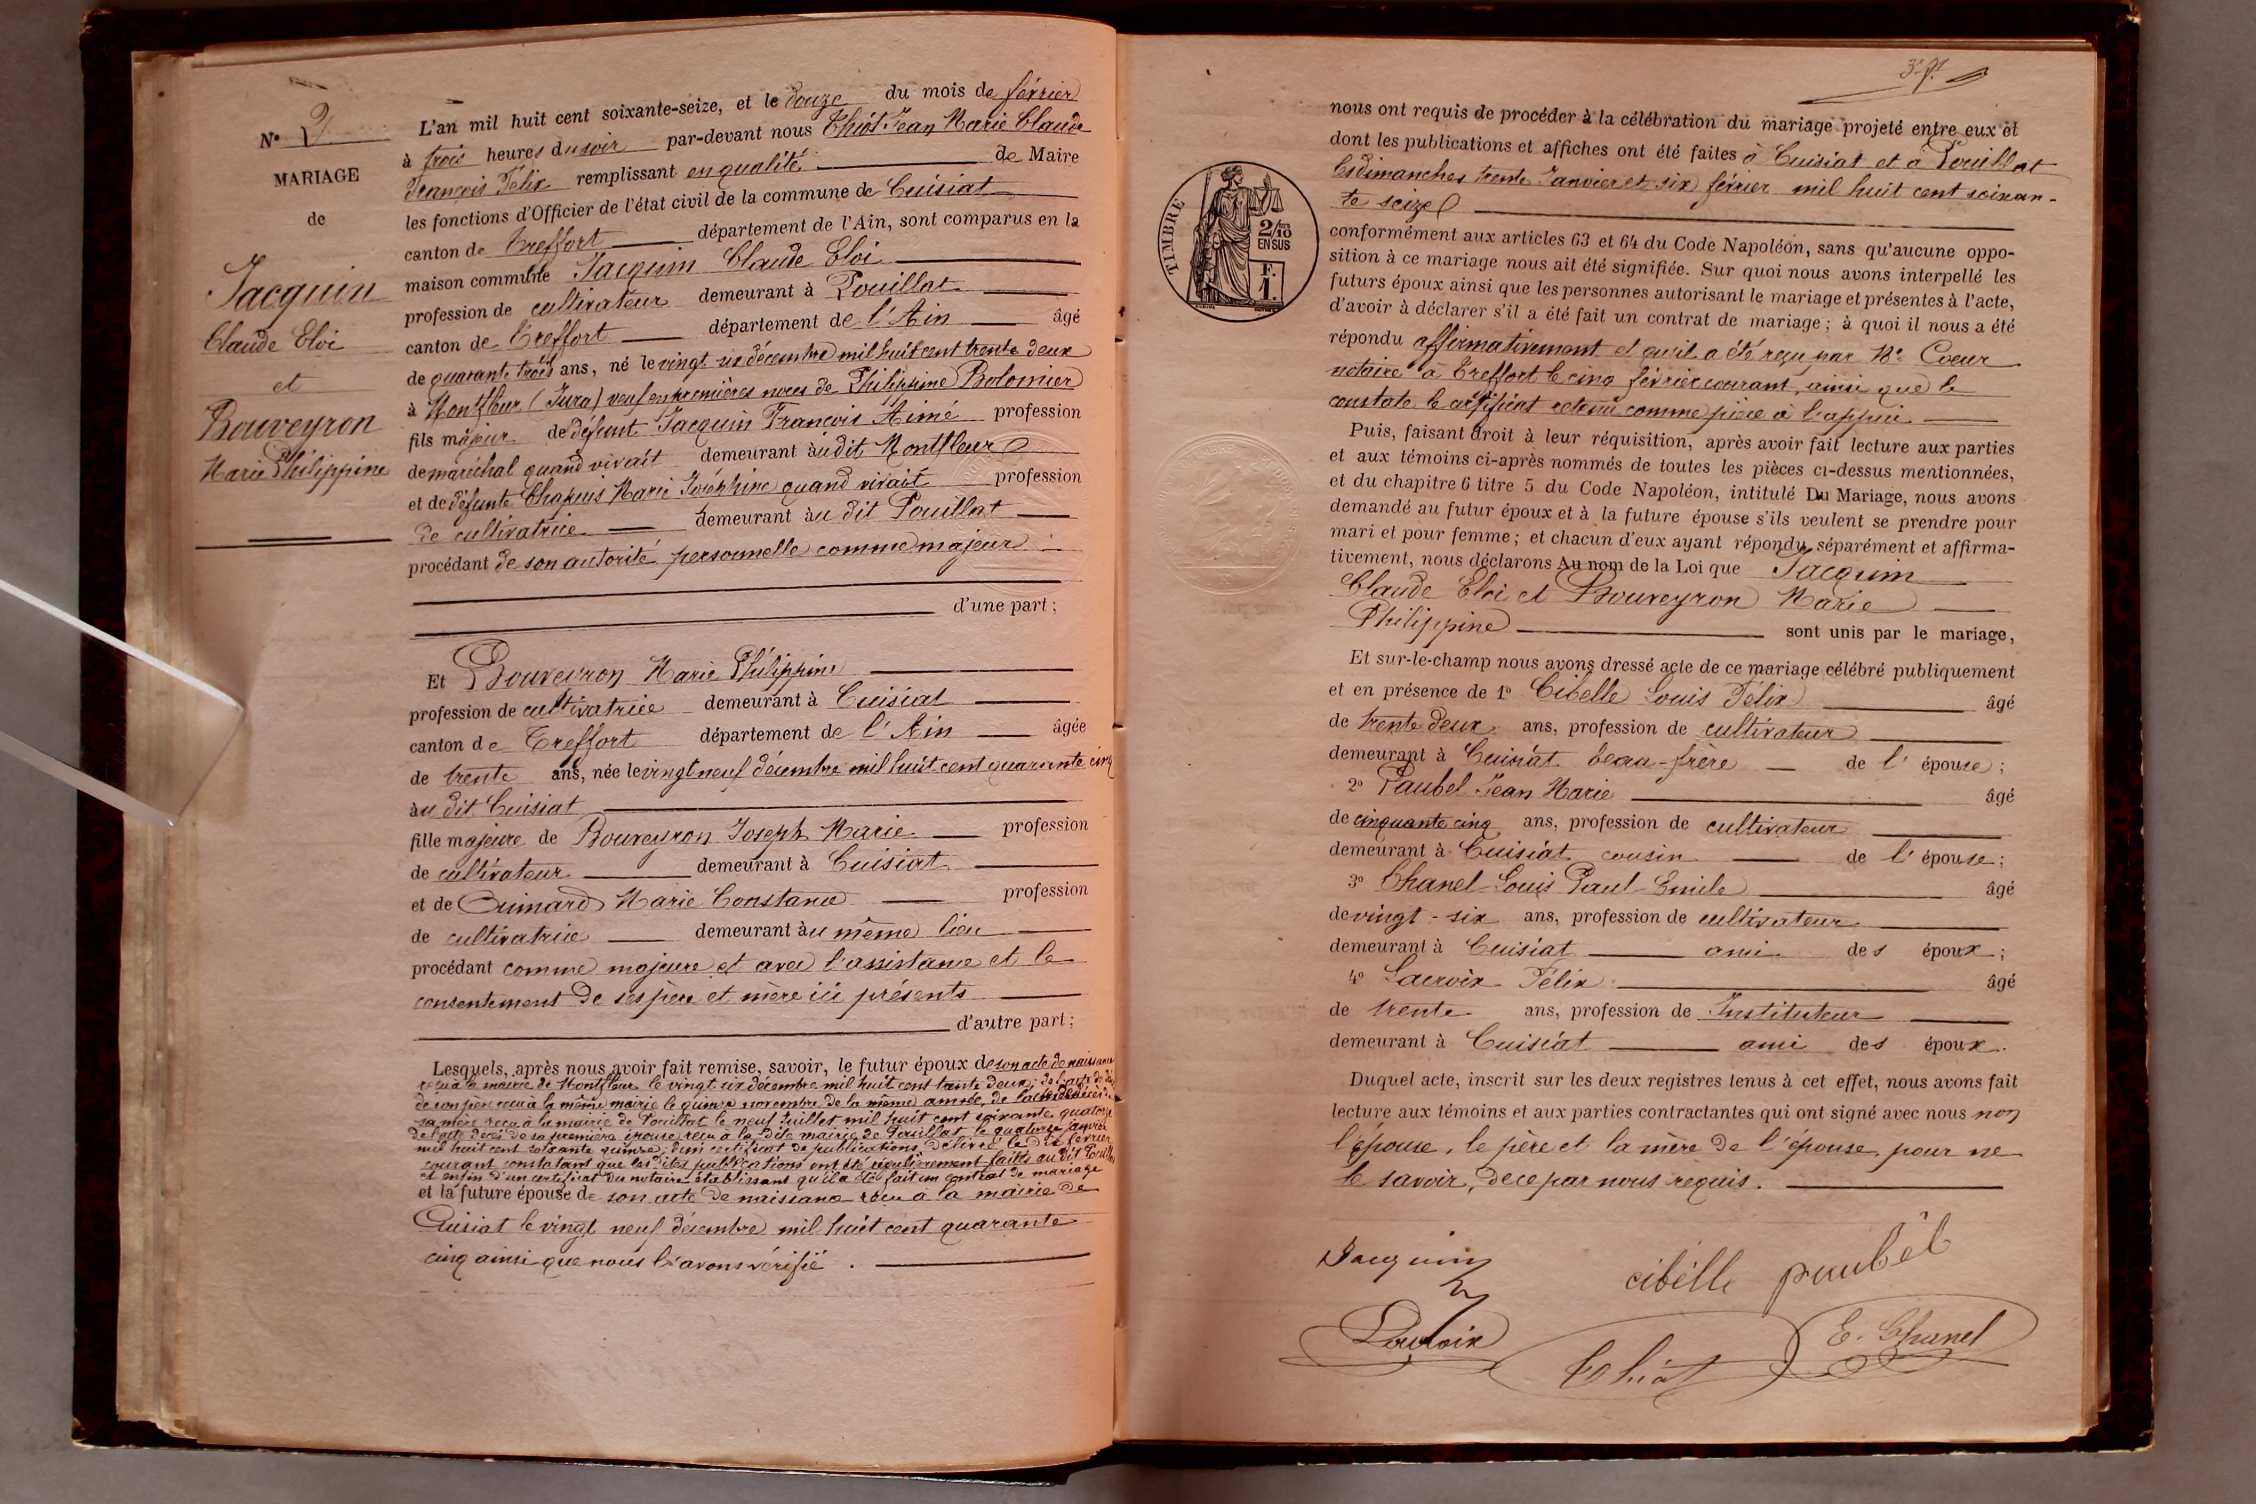 N° 2
MARIAGE
de
Jacquin
Claude Eloi
et
Bouveyron
Marie Philippine
L'an mil huit cent soixante-seize, et le douze du mois de février
à trois heures du soir par-devant nous Thiot Jean Marie Claude
François Félix remplissant en qualité de Maire
les fonctions d'Officier de l'état civil de la commune de Cuisiat
canton de Treffort département de l'Ain, sont comparus en la
maison commune Jacquin Claude Eloi
profession de cultivateur demeurant à Pouillat
canton de Treffort département de l'Ain âgé
de quarante trois ans, né le vingt six décembre mil huit cent trente deux
à Montfleur (Jura) veuf en premières noces de Philippine Bolomier
fils majeur de défunt Jacquin François Aimé profession
de maréchal quand vivait demeurant au dit Montfleur
et de défunte Chapuis Marie Joséphine quand vivait profession
de cultivatrice demeurant au dit Pouillat
procédant de son autorité personnelle comme majeur
d'une part ;
Et Bouveyron Marie Philippine
profession de cultivatrice demeurant à Cuisiat
canton de Treffort département de l'Ain âgée
de trente ans, née le vingt neuf décembre mil huit cent quarante cinq
au dit Cuisiat
fille majeure de Bouveyron Joseph Marie profession
de cultivateur demeurant à Cuisiat
et de Guimard Marie Constance profession
de cultivatrice demeurant au même lieu
procédant comme majeure et avec l'assistance et le
consentement de ses père et mère ici présents
d'autre part ;
Lesquels, après nous avoir fait remise, savoir, le futur époux de son acte de naissance
reçu à la mairie de Montfleur le vingt six décembre mil huit cent trente deux, de l'acte de
de son père reçu à la même mairie le quinze novembre de la même année, de l'acte de décès de
sa mère reçu à la mairie de Pouillat le neuf juillet mil huit cent soixante quatorze
de l'acte décès de sa première épouse reçu à la dite mairie de Pouillat le quatorze janvier
mil huit cent soixante quinze, d'un certificat de publications, délivré le dix février
courant constatant que les dites publications ont été régulièrement faites au dit Pouillat
et enfin d'un certificat du notaire établissant qu'il a été fait un contrat de mariage
et la future épouse de son acte de naissance reçu à la mairie de
Cuisiat le vingt neuf décembre mil huit cent quarante
cinq ainsi que nous l'avons vérifié.
nous ont requis de procéder à la célébration du mariage projeté entre eux et
dont les publications et affiches ont été faites à Cuisiat et à Pouillat
les dimanches trente Janvier et six février mil huit cent soixan-
te seize
TIMBRE
2/10 EN SUS
F. 1.
conformément aux articles 63 et 64 du Code Napoléon, sans qu'aucune oppo-
sition à ce mariage nous ait été signifiée. Sur quoi nous avons interpellé les
futurs époux ainsi que les personnes autorisant le mariage et présentes à l'acte,
d'avoir à déclarer s'il a été fait un contrat de mariage ; à quoi il nous a été
répondu affirmativement et qu'il a été reçu par Me Coeur
notaire à Treffort le cinq février courant, ainsi que le
constate le certificat retenu comme pièce à l'appui
Puis, faisant droit à leur réquisition, après avoir fait lecture aux parties
et aux témoins ci-après nommés de toutes les pièces ci-dessus mentionnées,
et du chapitre 6 titre 5 du Code Napoléon, intitulé Du Mariage, nous avons
demandé au futur époux et à la future épouse s'ils veulent se prendre pour
mari et pour femme ; et chacun d'eux ayant répondu séparément et affirma-
tivement, nous déclarons Au nom de la Loi que Jacquin
Claude Eloi et Bouveyron Marie
Philippine sont unis par le mariage,
Et sur-le-champ nous avons dressé acte de ce mariage célébré publiquement
et en présence de 1° Cibelle Louis Félix âgé
de trente deux ans, profession de cultivateur
demeurant à Cuisiat beau-frère de l'épouse ;
2° Paubel Jean Marie âgé
de cinquante cinq ans, profession de cultivateur
demeurant à Cuisiat cousin de l'épouse ;
3° Chanel Louis Paul Emile âgé
de vingt-six ans, profession de cultivateur
demeurant à Cuisiat ami des époux ;
4° Lacroix Félix âgé
de trente ans, profession de Instituteur
demeurant à Cuisiat ami des époux.
Duquel acte, inscrit sur les deux registres tenus à cet effet, nous avons fait
lecture aux témoins et aux parties contractantes qui ont signé avec nous non
l'épouse, le père et la mère de l'épouse pour ne
le savoir, de ce par nous requis.
Jacquin
cibélle paubél
Lacroix
Thiot
E. Chanel